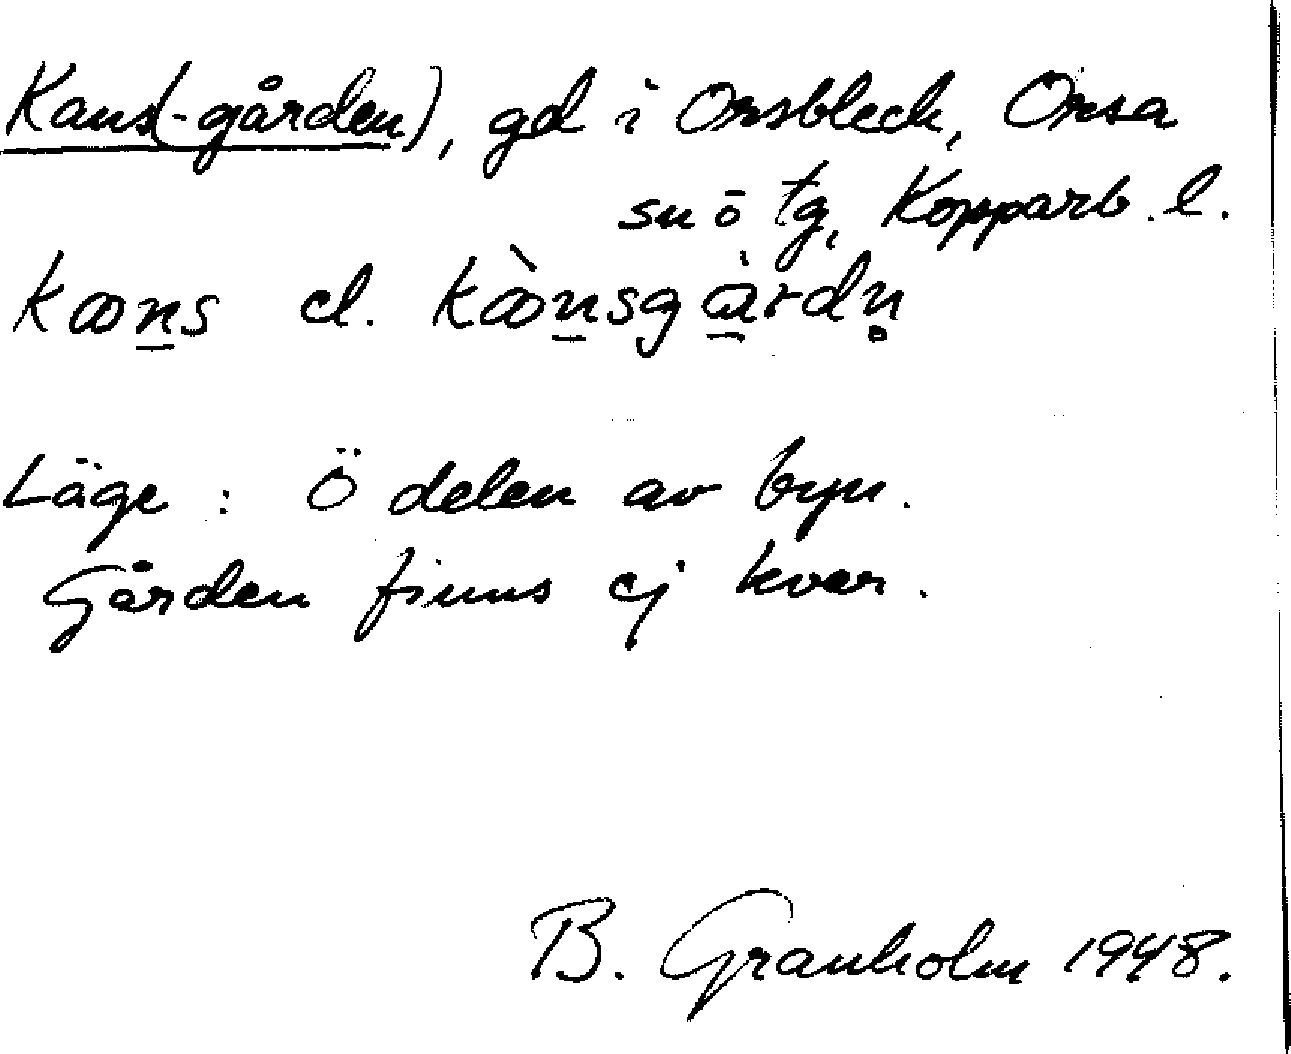 Kans(-gården), gd i Orsbleck, Orsa
sn ō tg, Kopparb. l.
kaon̲s el. kàon̲sgà̲rdn̥
Läge : Ö delen av byn.
Gården finns ej kvar.
B. Granholm 1948.